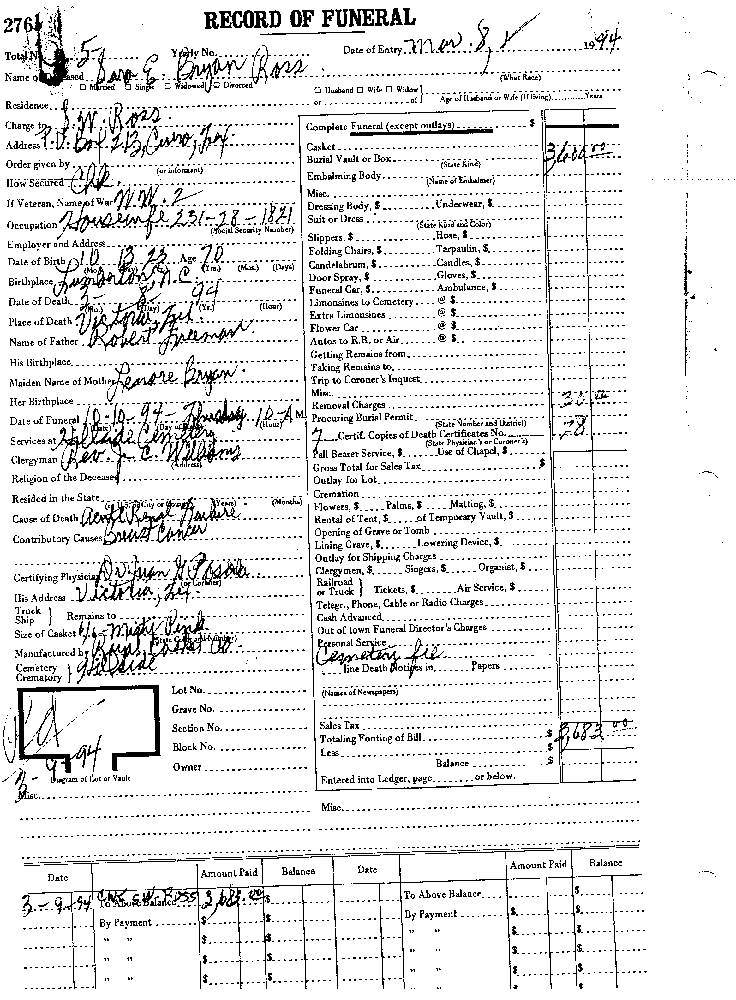 RECORD OF FUNERAL
276
Total No. 5 Yearly No. Date of Entry Mar. 8, 1994
Name of Deceased Sara E. Bryan Ross
☐ Married ☐ Single ☐ Widowed ☐ Divorced (What Race)
☐ Husband ☐ Wife ☐ Widow
or of Age of Husband or Wife (If living) Years
Residence
Charge to S. W. Ross
Address P.O. Box 213, Cuero, Tex.
Order given by (or informant)
How Secured
If Veteran, Name of War W.W. 2
Occupation Housewife 231-28-1821
(Social Security Number)
Employer and Address
Date of Birth 10 13 23 Age 70
(Mo.) (Day) (Yrs.) (Mos.) (Days)
Birthplace Lumberton, N.C.
Date of Death 3- 8, 94
(Mo.) (Day) (Yr.) (Hour)
Place of Death Victoria, Tex.
Name of Father Robert Freeman
His Birthplace
Maiden Name of Mother Lenore Bryan
Her Birthplace
Date of Funeral -10-94- Thursday 10-A M.
(Date) (Day of Week) (Hour)
Services at Hillside Cemetery
Clergyman Rev. J. C. Williams
(Address)
Religion of the Deceased
Resided in the State
(or in City or County) (Years) (Months)
Cause of Death Renal Failure
Contributory Causes Breast Cancer
Certifying Physician Dr. Juan G.
(or Coroner)
His Address Victoria, Tex.
Truck
Ship } Remains to
Size of Casket 6/6- Misty Pink
(State Color and Number)
Manufactured by Royal Casket Co.
Cemetery
Crematory } Hillside
Lot No.
Grave No.
Section No.
Block No.
Owner
Pd
3-9-94
Diagram of Lot or Vault
Misc.
Complete Funeral (except outlays) $
Casket
Burial Vault or Box 3,600 00
(State Kind)
Embalming Body
(Name of Embalmer)
Misc.
Dressing Body, $ Underwear, $
Suit or Dress
(State Kind and Color)
Slippers, $ Hose, $
Folding Chairs, $ Tarpaulin, $
Candelabrum, $ Candles, $
Door Spray, $ Gloves, $
Funeral Car, $ Ambulance, $
Limousines to Cemetery @ $
Extra Limousines @ $
Flower Car @ $
Autos to R.R. or Air @ $
Getting Remains from
Taking Remains to
Trip to Coroner's Inquest
Misc.
Removal Charges 00
Procuring Burial Permit
(State Number and District)
7 Certif. Copies of Death Certificates No. 28
(State Physician's or Coroner's)
Pall Bearer Service, $ Use of Chapel, $
Gross Total for Sales Tax $
Outlay for Lot
Cremation
Flowers, $ Palms, $ Matting, $
Rental of Tent, $ of Temporary Vault, $
Opening of Grave or Tomb
Lining Grave, $ Lowering Device, $
Outlay for Shipping Charges
Clergymen, $ Singers, $ Organist, $
Railroad
or Truck } Tickets, $ Air Service, $
Telegr., Phone, Cable or Radio Charges
Cash Advanced
Out of Town Funeral Director's Charges
Personal Service
Cemetery fee
line Death Notices in Papers
(Names of Newspapers)
Sales Tax
Totaling Footing of Bill $ 3,683 00
Less $
Balance $
Entered into Ledger, page or below.
Misc.
Date Amount Paid Balance Date Amount Paid Balance
3-9-94 S.W. Ross 3,683.00 $ To Above Balance $
To Above Balance
By Payment $ $ By Payment $ $
" " $ $ " " $ $
" " $ $ " " $ $
" " $ $ " " $ $